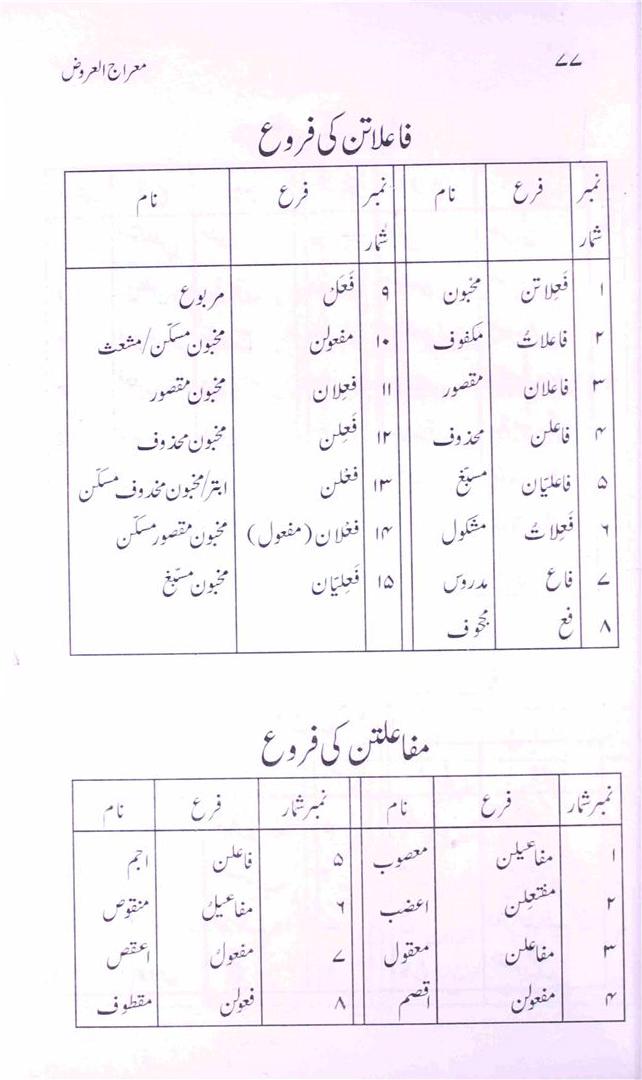 ۷۷
معراج العروض
فاعلاتن کی فروع
نمبر شمار فرع نام نمبر شمار فرع نام
۱ فَعِلاتن مخبون ۹ فَعَل مربوع
۲ فاعلاتُ مکفوف ۱۰ مفعولن مخبون مسکّن/مشعث
۳ فاعلان مقصور ۱۱ فَعِلان مخبون مقصور
۴ فاعلن محذوف ۱۲ فَعِلن مخبون محذوف
۵ فاعلیّان مسبّغ ۱۳ فعْلن ابتر/مخبون محذوف مسکّن
۶ فَعِلاتُ مشکول ۱۴ فعْلان (مفعول) مخبون مقصور مسکّن
۷ فاع مدروس ۱۵ فَعِلیّان مخبون مسبّغ
۸ فع مجحوف
مفاعلتن کی فروع
نمبر شمار فرع نام نمبر شمار فرع نام
۱ مفاعیلن معصوب ۵ فاعلن اجم
۲ مفتعِلن اعضب ۶ مفاعیلُ منقوص
۳ مفاعلن معقول ۷ مفعولُ اعقص
۴ مفعولن اقصم ۸ فعولن مقطوف